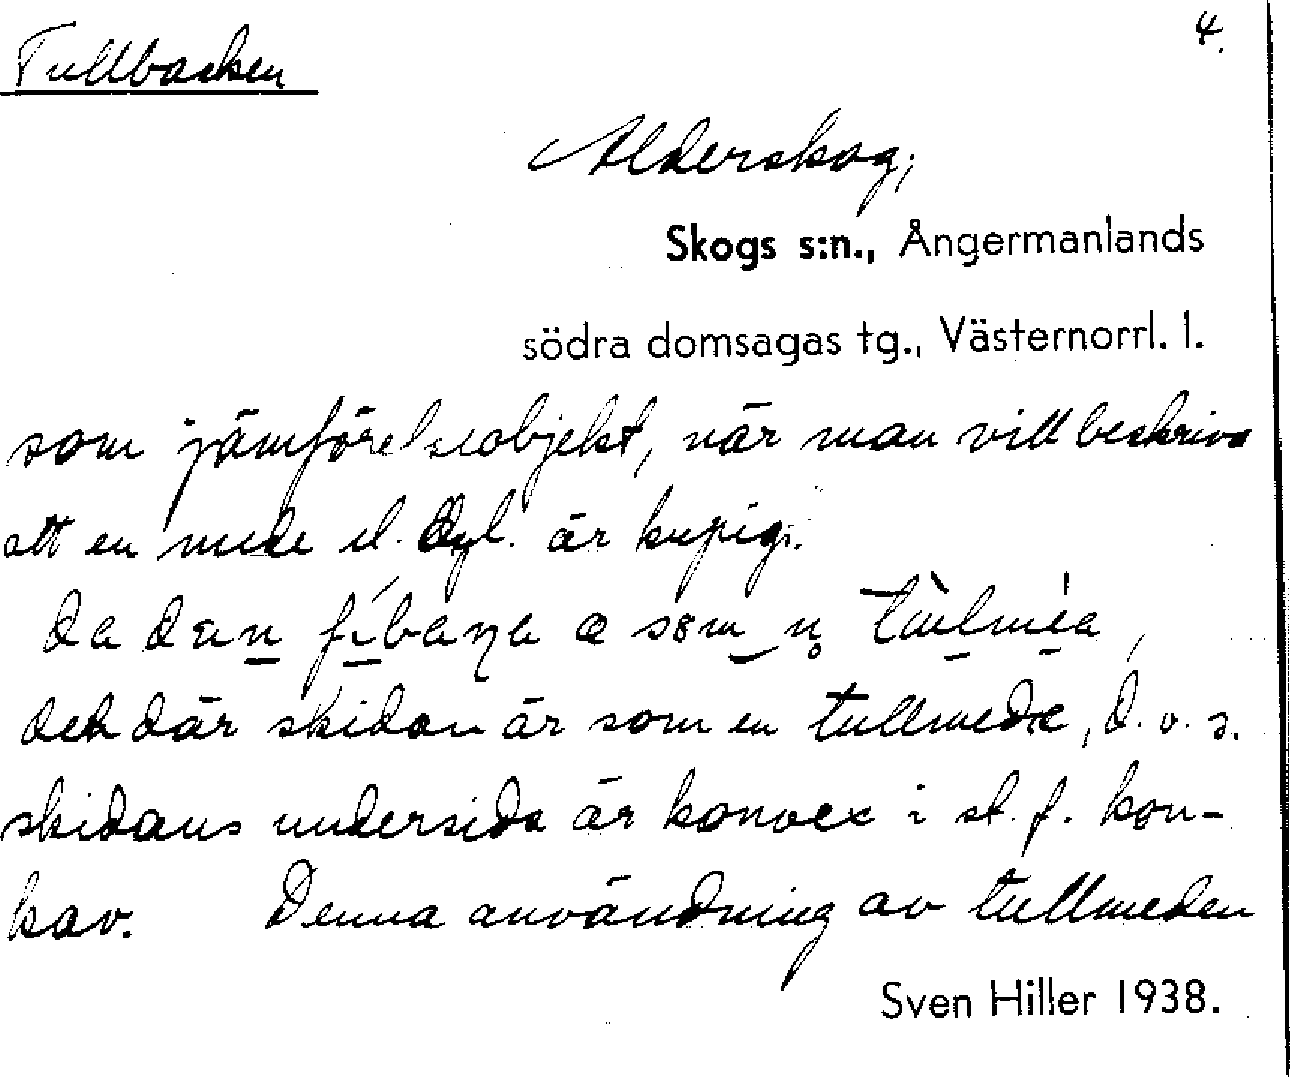 Tullbacken
4.
Alderskog,
Skogs s:n., Ångermanlands
södra domsagas tg., Västernorrl. l.
som jämförelseobjekt, när man vill beskriva
att en mede el. dyl. är kupig.
da den a som
den där skidan är som en tullmede, d. v. s.
skidans undersida är konvex i st. f. kon-
kav. Denna användning av tullmeden
Sven Hiller 1938.